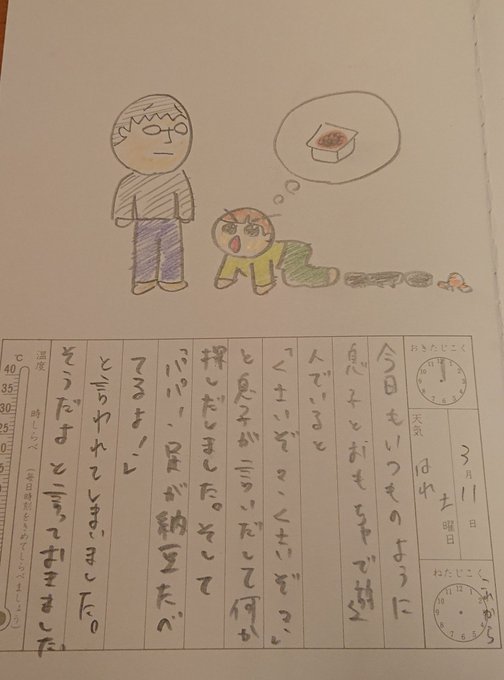 3月11日
土曜日
おきたじこく
天気 はれ
ねたじこく
これから
今日もいつものように
息子とおもちゃで遊
んでいると
「くさいぞ〜、くさいぞ〜」
と息子が言いだして何か
探しだしました。そして
「パパー、足が納豆たべ
てるよ!」
と言われてしまいました。
そうだよ と言っておきました。
温度 時しらべ (毎日時刻をきめてしらべましょう)
℃
40
35
30